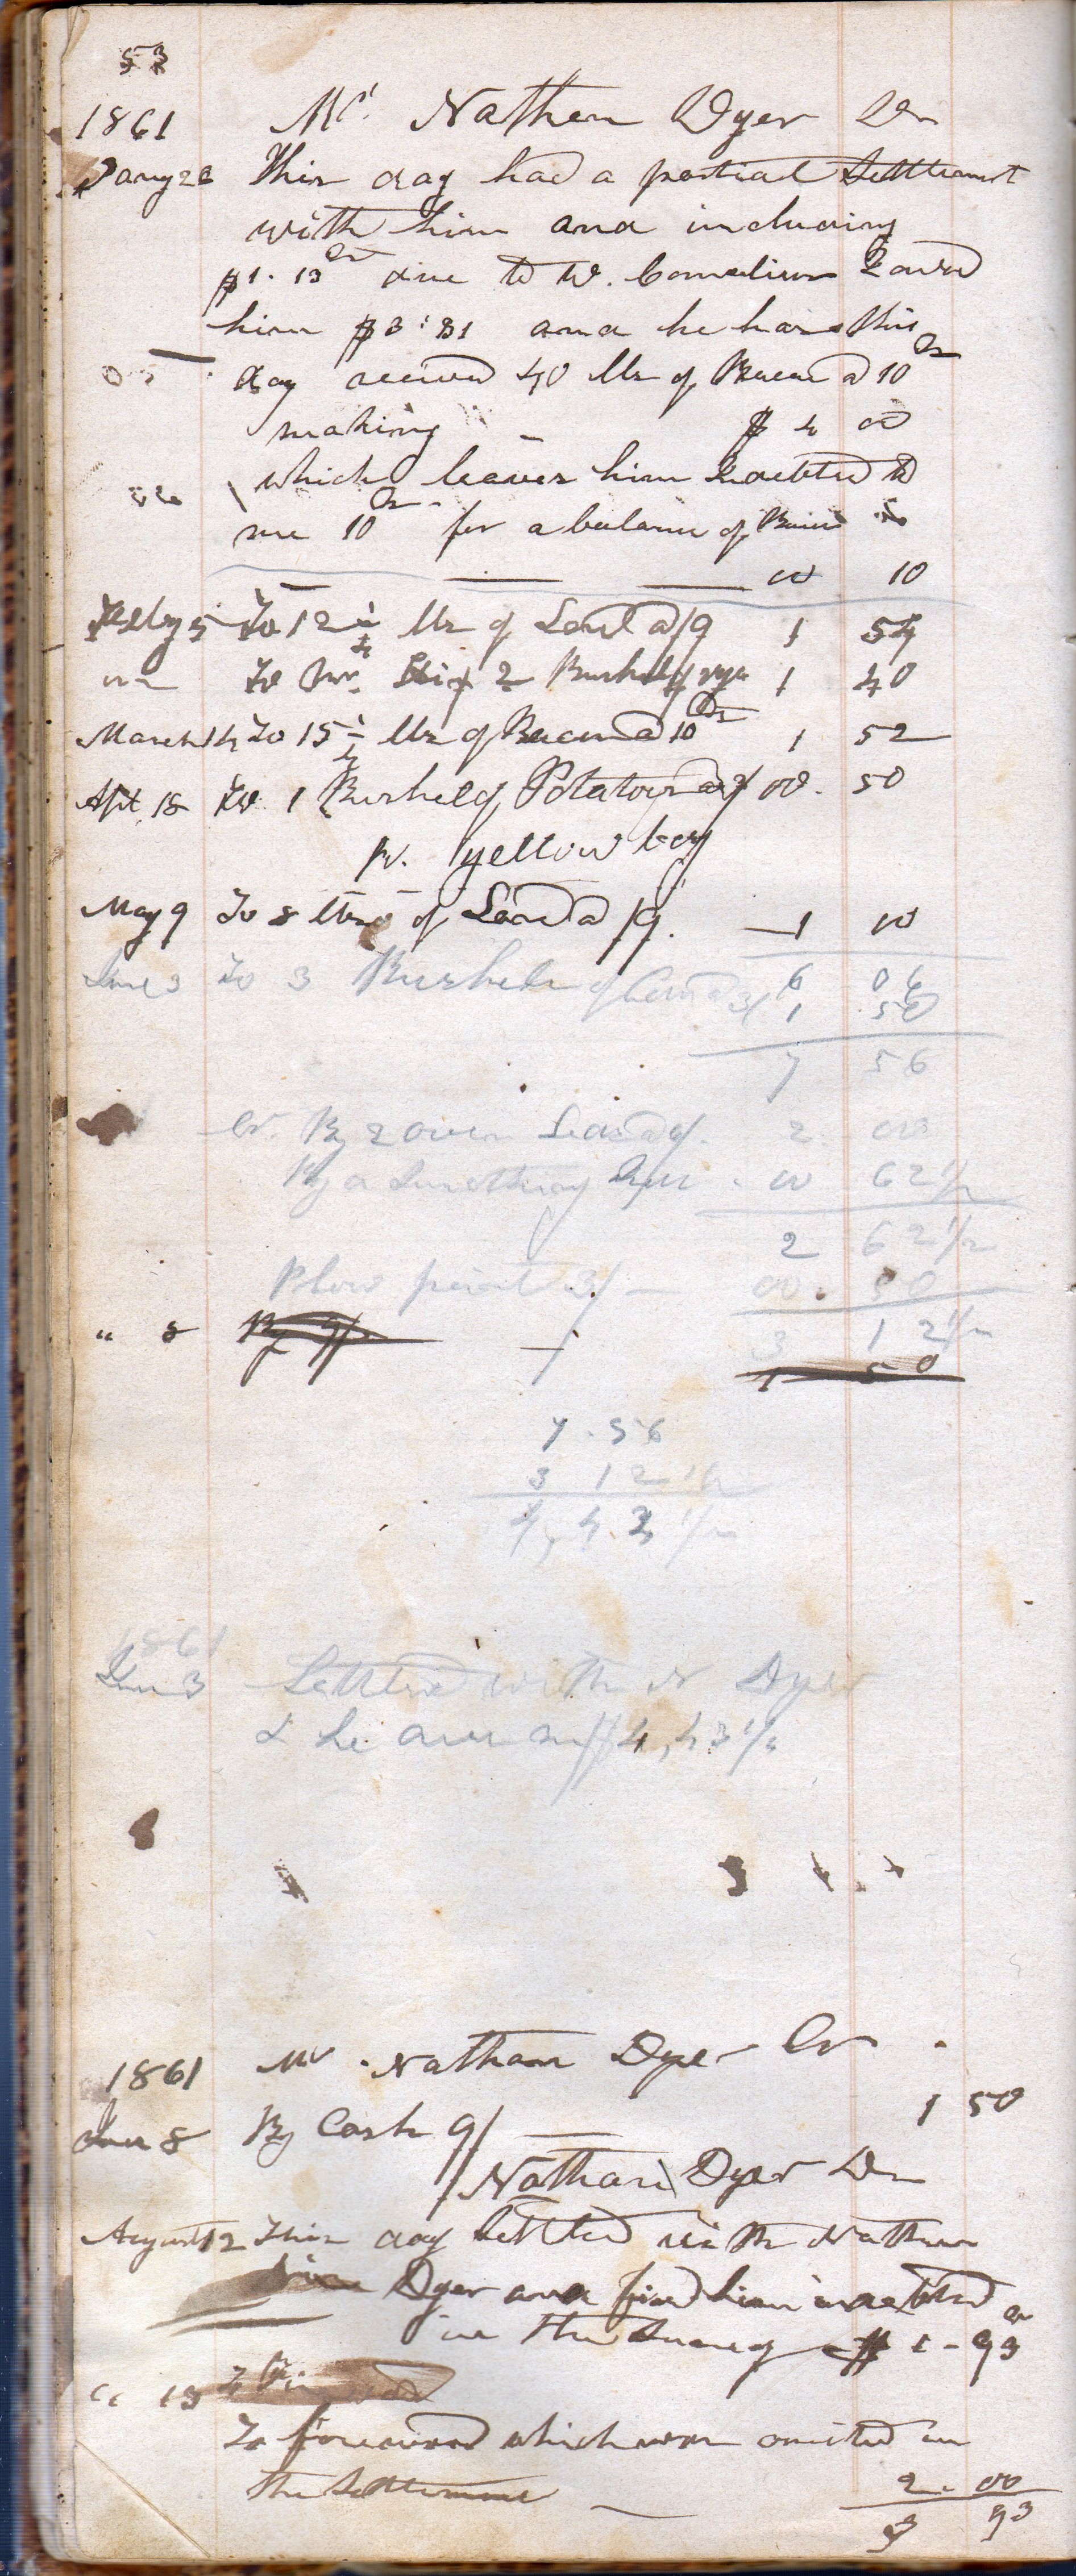 53
1861 Mr. Nathen Dyer Dr
Jany 26 This day had a partial Settlement
with him and including
$1.13 cts due to W. Cornelius I owed
him $3.81 and he has this
day received 40 lbs of Bacon a 10 cts
making $ 4 00
which leaves him Indebted to
me 10 cts for a balance of Bacon
00 10
Feby 5 To 12 1/4 lbs of Lard a /9 1 54
To 2 Bushels of rye 1 40
March 14 To 15 1/4 lbs of Bacon a 10 cts 1 52
Apl. 18 To 1 Bushel of Potatoes a 3/ 00. 50
pr. yellow boy
May 9 To 8 lbs of Lard a /9. 1 00
6 06
June 3 To 3 Bushels of Corn a 3/ 1 50
7 56
Cr. By 2 2. 00
By a 00 62 1/2
2 62 1/2
Plow point 3/ — 00. 50
3 12 1/2
" 8 By 9/ — 1 50
7.56
3 12 1/2
4,43 1/2
1861
June 3 Settled with N Dyer
& he owes me $4,43 1/2
1861 Mr. Nathan Dyer Cr
June 8 By Cash 9/ — 1 50
Nathan Dyer Dr
August 12 This day settled with Nathan
Dyer and find him indebted
in the sum of $1-93 cts
" 13
To which was omitted in
the Settlement — 2. 00
3 93